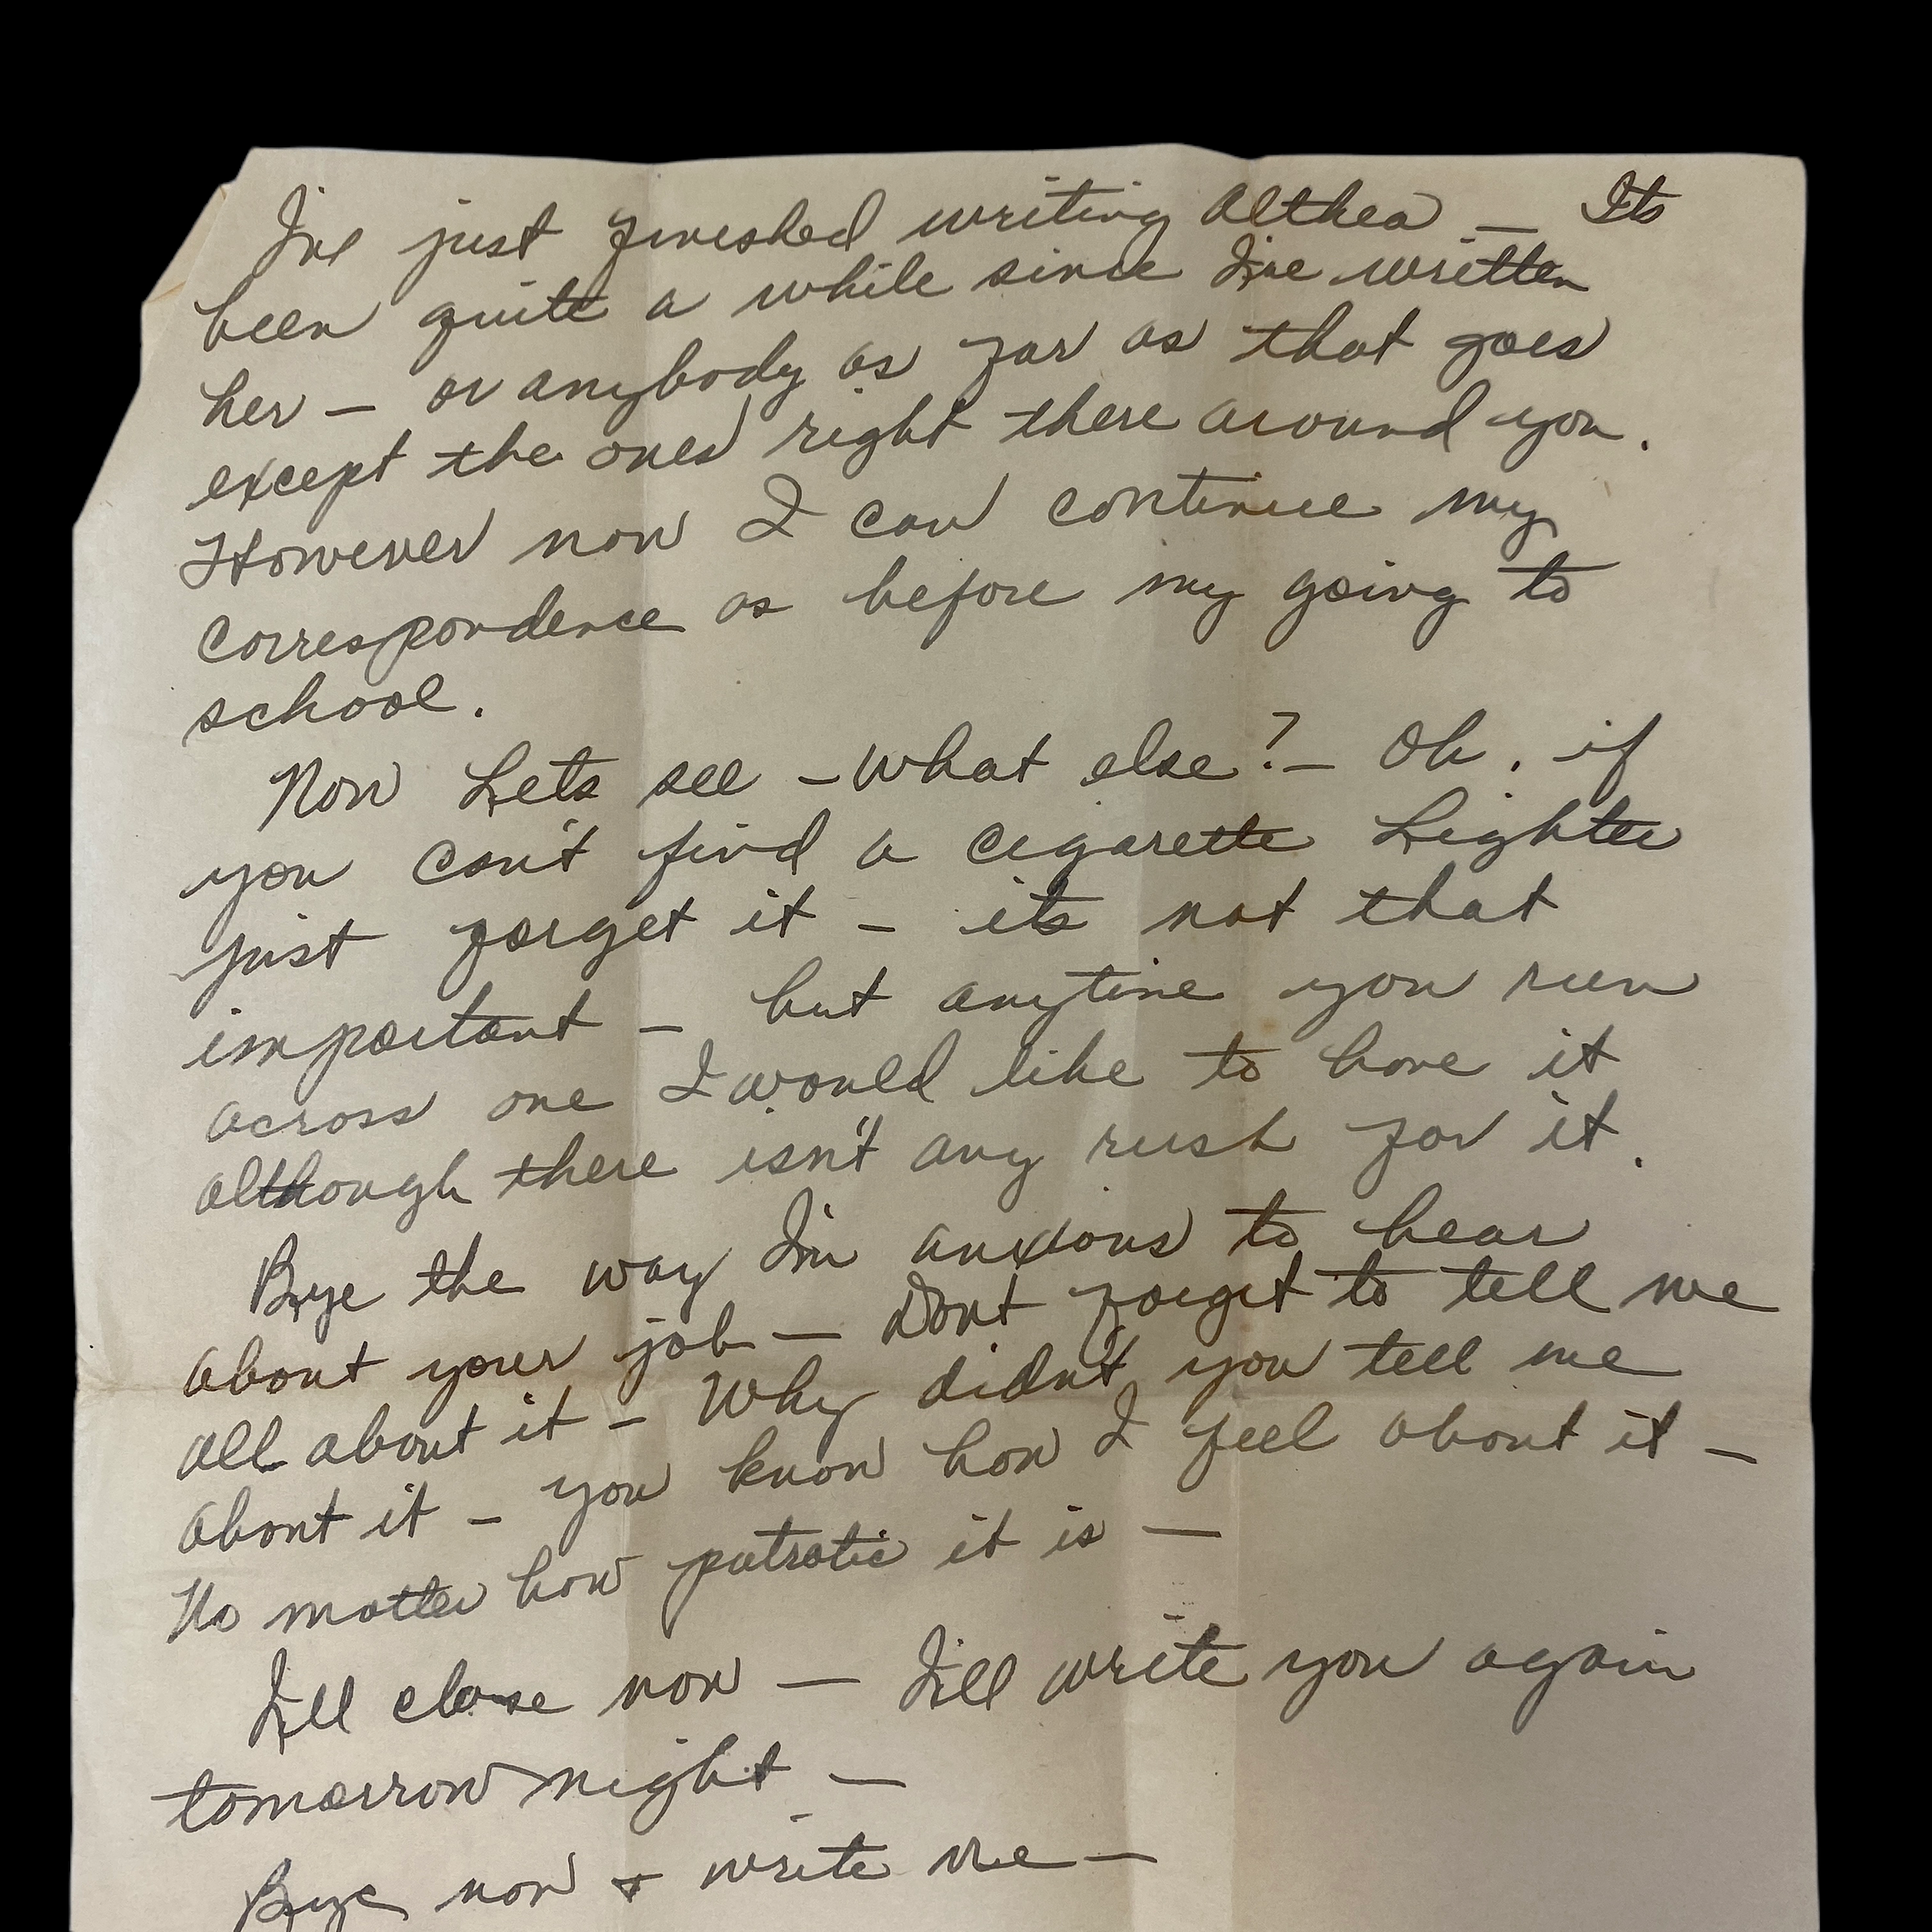 I've just finished writing Althea — Its
been quite a while since I've written
her — or anybody as far as that goes
except the ones right there around you.
However now I can continue my
correspondence as before my going to
school.
Now Lets see – what else? – Oh, if
you can't find a cigarette Lighter
just forget it – its not that
important – but anytime you run
across one I would like to have it
although there isn't any rush for it.
Bye the way I'm anxious to hear
about your job — Dont forget to tell me
all about it – Why didn't you tell me
about it – you know how I feel about it –
No matter how patrotic it is —
I'll close now — I'll write you again
tomorrow night —
Bye now + write me —